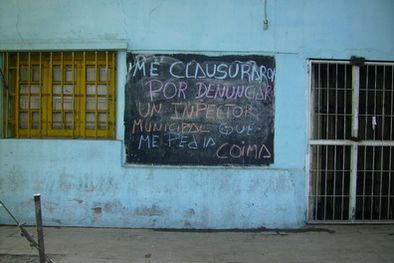 ¡ME CLAUSURARON
POR DENUNCIAR
UN INPECTOR
MUNICIPAL QUE
ME PEDIA COIMA